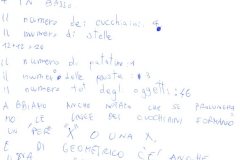 IN BASSO
il numero dei cucchiaini: 4
il numero di stelle
12+12 = 26
il numero di patatine 4
il numero delle pasta : 3
il numero tot degli oggetti: 46
ABBIAMO ANCHE NOTATO CHE SE PROLUNGHI
LE LINEE DEI CUCCHIAINI FORMANO
UN PER "X" O UNA X
DI GEOMETRICO C'È ANCHE